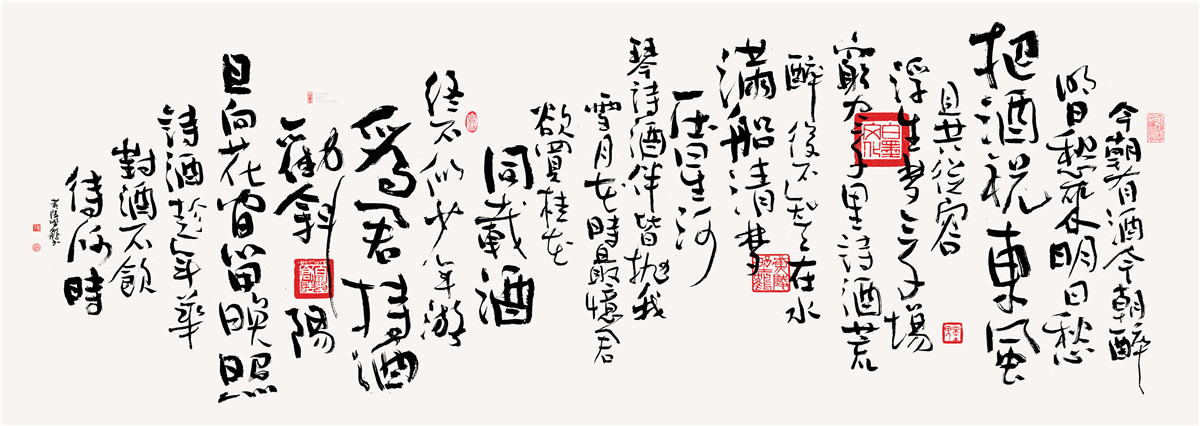 今朝有酒今朝醉
明日愁來明日愁
把酒祝東風
且共從容
浮生夢三千場
窮尽千里詩酒荒
醉後不知天在水
滿船清夢
壓星河
琴詩酒伴皆抛我
雪月花時最憶君
欲買桂花
同載酒
終不似少年游
爲君持酒
勸斜陽
且向花間留晚照
詩酒趁年華
對酒不飲
待何時
白墨
文化